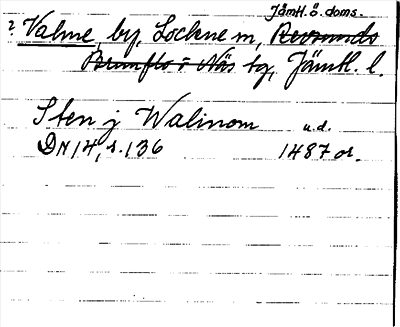 Jämtl. ö. doms.
? Valme, by, Lockne sn, Revsunds
Brunflo o Näs tg, Jämtl. l.
Sten j Walinom u.d.
DN 14, s. 136 1487 or.